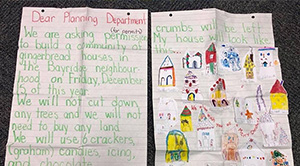 Dear Planning Department
(for permits)
We are asking permission
to build a community of
gingerbread houses in
Davridge neighbour-
hood on Friday, December
15 of this year.
We will not cut down
any trees and we will not
need to buy any land.
We will use 6 crackers,
(graham) candies, icing,
and
crumbs will be left.
house will look like
this...